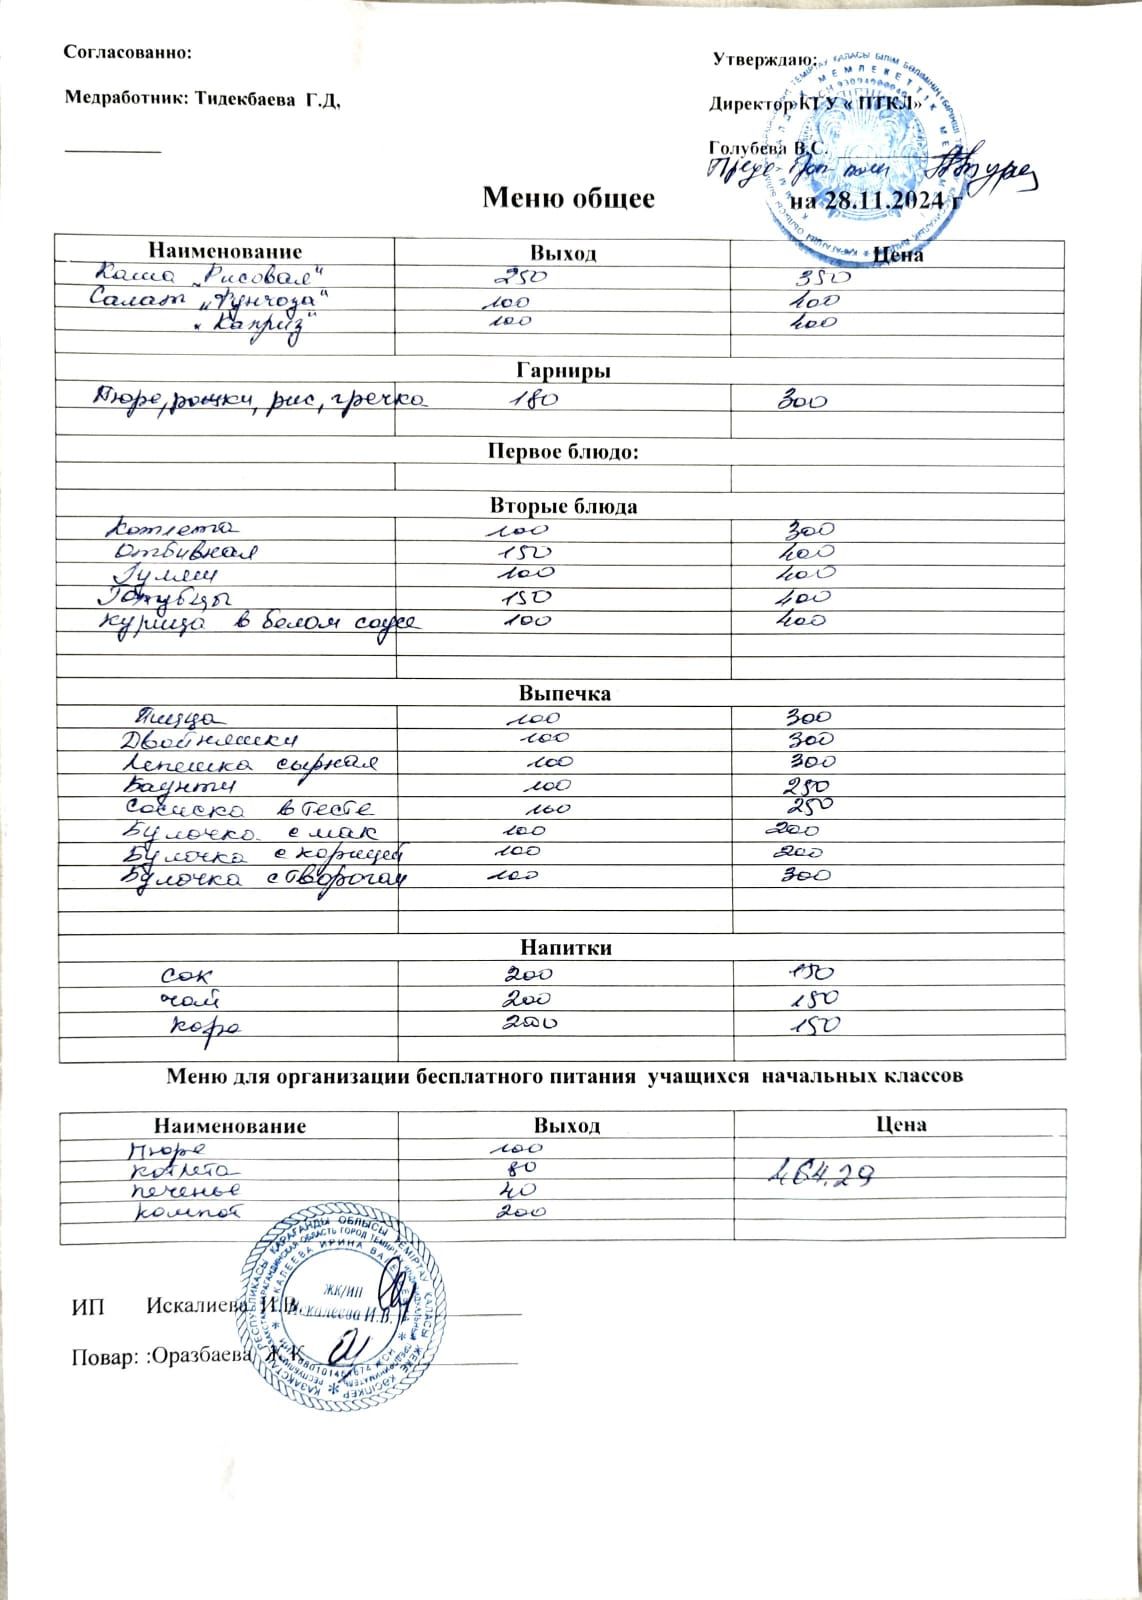 Согласованно:
Утверждаю:
Медработник: Тидекбаева Г.Д,
Директор КГУ « ПТКЛ»
Голубева В.С.
Меню общее
на 28.11.2024 г
Наименование Выход Цена
Каша „Рисовая" 250 350
Салат „Фунчоза" 100 400
„Каприз" 100 400
Гарниры
Пюре, рожки, рис, гречка 180 300
Первое блюдо:
Вторые блюда
Котлета 100 300
Отбивная 150 400
Гуляш 100 400
Голубцы 150 400
Курица в белом соусе 100 400
Выпечка
Пицца 100 300
Двойняшки 100 300
Лепешка сырная 100 300
Баунти 100 250
Сосиска в тесте 100 250
Булочка с мак 100 200
Булочка с корицей 100 200
Булочка с творогом 100 300
Напитки
сок 200 150
чай 200 150
кофе 200 150
Меню для организации бесплатного питания учащихся начальных классов
Наименование Выход Цена
Пюре 100
котлета 80 464.29
печенье 40
компот 200
ЖК/ИП
Искалеева И.В.
ИП Искалиева И.В.
Повар: :Оразбаева Ж.К